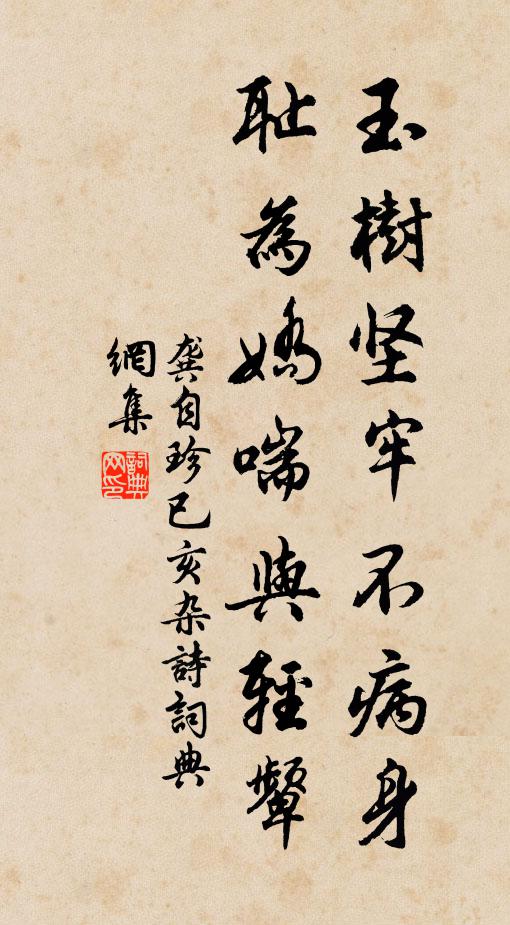 玉樹坚牢不病身
耻為嬌喘與輕顰
龚自珍己亥杂詩詞典
網集
詞典网印